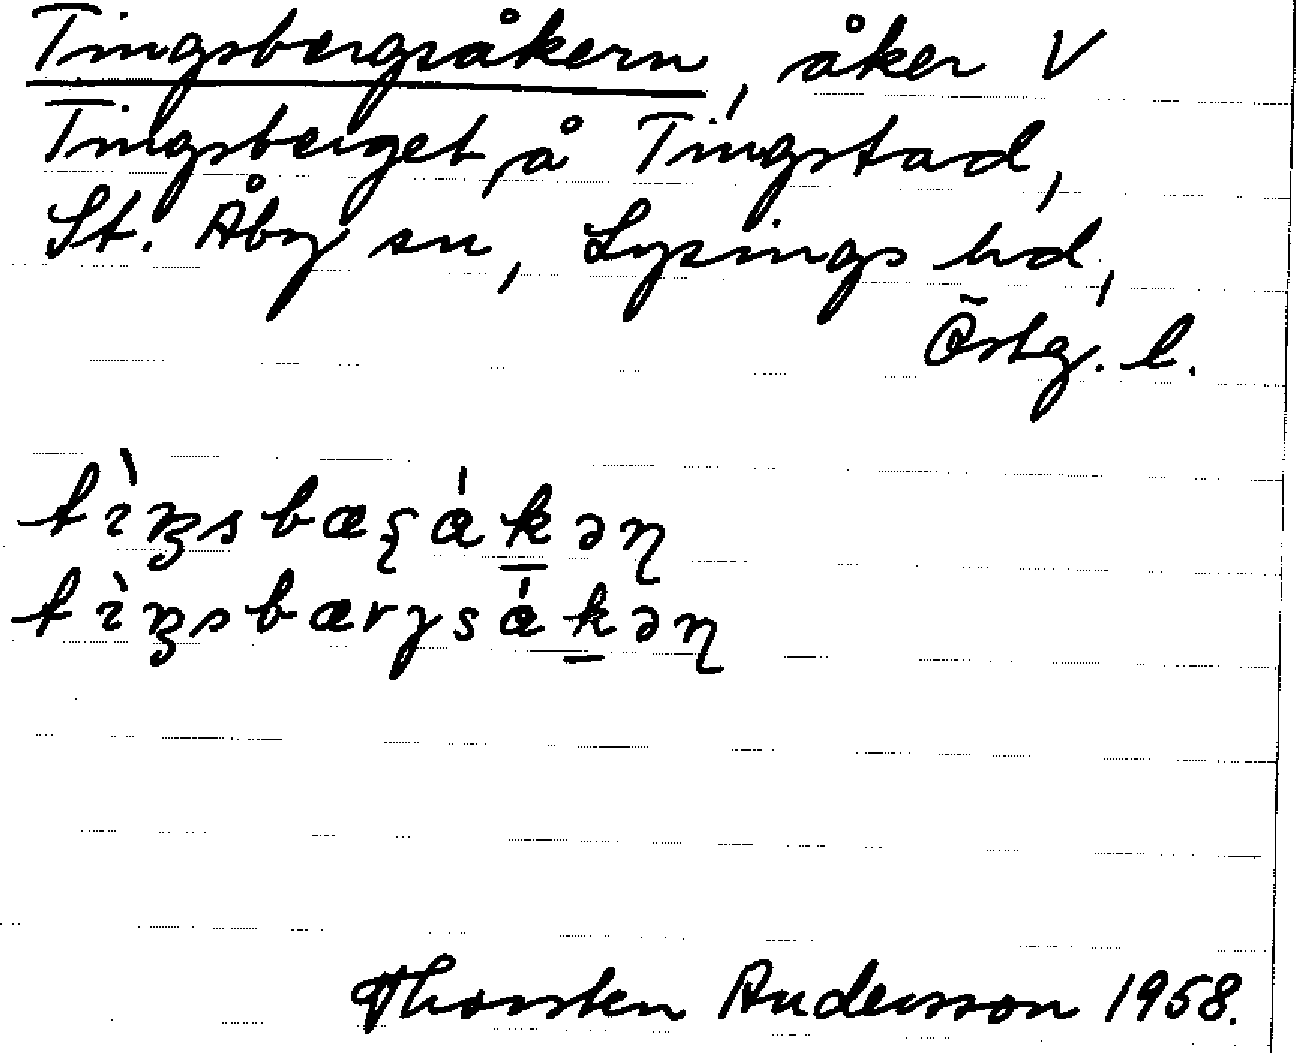 Tingsbergsåkern, åker V
Tingsberget, å Tingstad,
St. Åby sn, Lysings hd,
Östg. l.
Thorsten Andersson 1958.